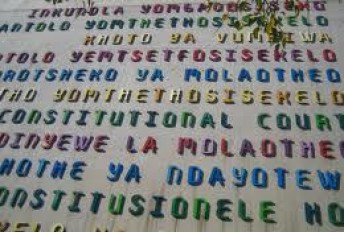 INKUNDLA YOMGAQOSISEKO
ANTOLO YOMTHETHOSISEKELO
KHOTO YA VUMBIWA
OTOLO YEMTSETFOSISEKELO
OROTSHEKO YA MOLAOTHEO
THO YOMTHETHOSISEKELO
CONSTITUTIONAL COURT
DINYEWE LA MOLAOTHEO
HOTHE YA NDAYOTEW
ONSTITUSIONELE HO